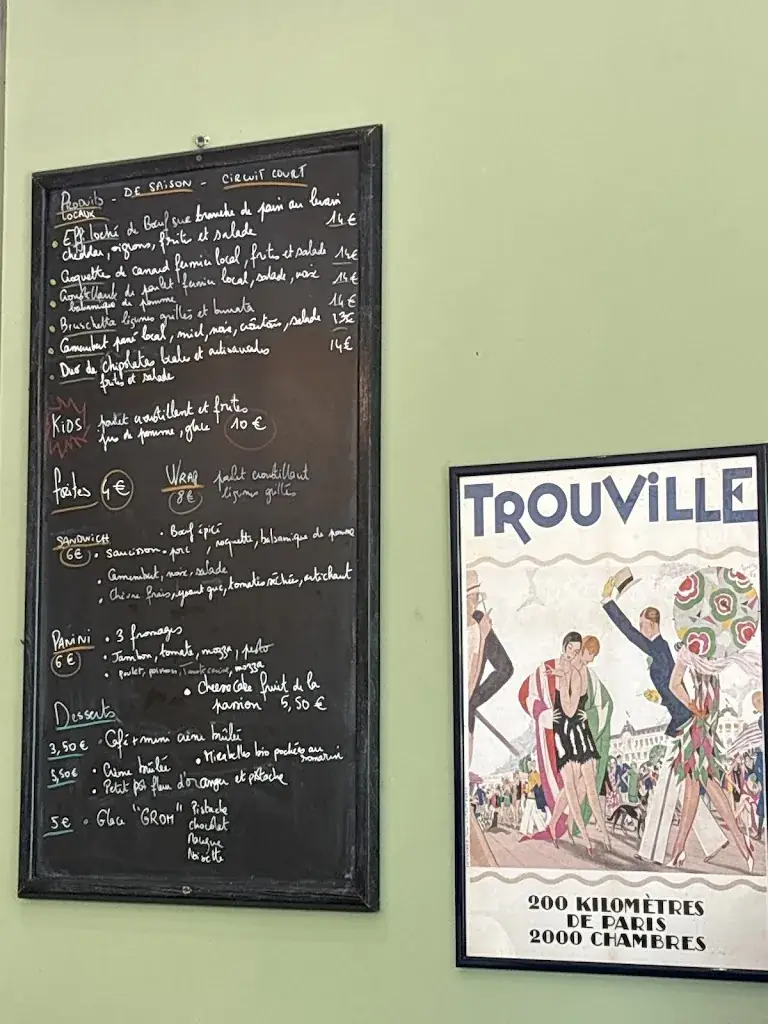 Produits locaux - DE SAISON - CIRCUIT COURT
• Effiloché de Bœuf sur branche de pain au levain
cheddar, oignons, frites et salade 14€
• Croquette de canard fermier local, frites et salade 14€
• Croustillant de poulet fermier local, salade, noix 14€
balsamique de pomme
• Bruschetta légumes grillés et burrata 14€
• Camembert pané local, miel, noix, croûtons, salade 13€
• Duo de chipolatas et artisanales 14€
frites et salade
KIDS poulet croustillent et frites
jus de pomme, glace 10€
frites 4€
WRAP poulet croustillant
8€ légumes grillés
SANDWICH • Bœuf épicé
6€ • saucisson porc, roquette, balsamique de pomme
• Camembert, noix, salade
• Chèvre frais, tomates séchées, artichaut
PANINI • 3 fromages
6€ • Jambon, tomate, mozza, pesto
• poulet, poivron, mozza
Desserts • Cheesecake fruit de la
passion 5,50€
3,50€ • Café + mini crème brûlée
5,50€ • Crème brûlée • Mirabelles bio pochées au romarin
• Petit pot fleur d'oranger et pistache
5€ • Glace "GROM" Pistache
chocolat
Noisette
TROUViLLE
200 KILOMÈTRES
DE PARIS
2000 CHAMBRES